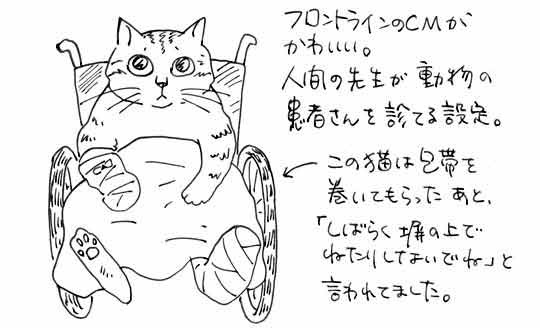 フロントラインのCMが
かわいい。
人間の先生が動物の
患者さんを診てる設定。
この猫は包帯を
巻いてもらったあと、
「しばらく塀の上で
ねたりしないでね」と
言われてました。